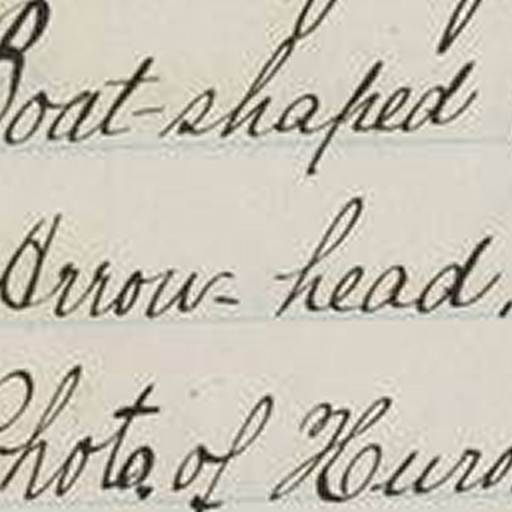 Boat-shaped
Arrow-head,
Photo. of Huro